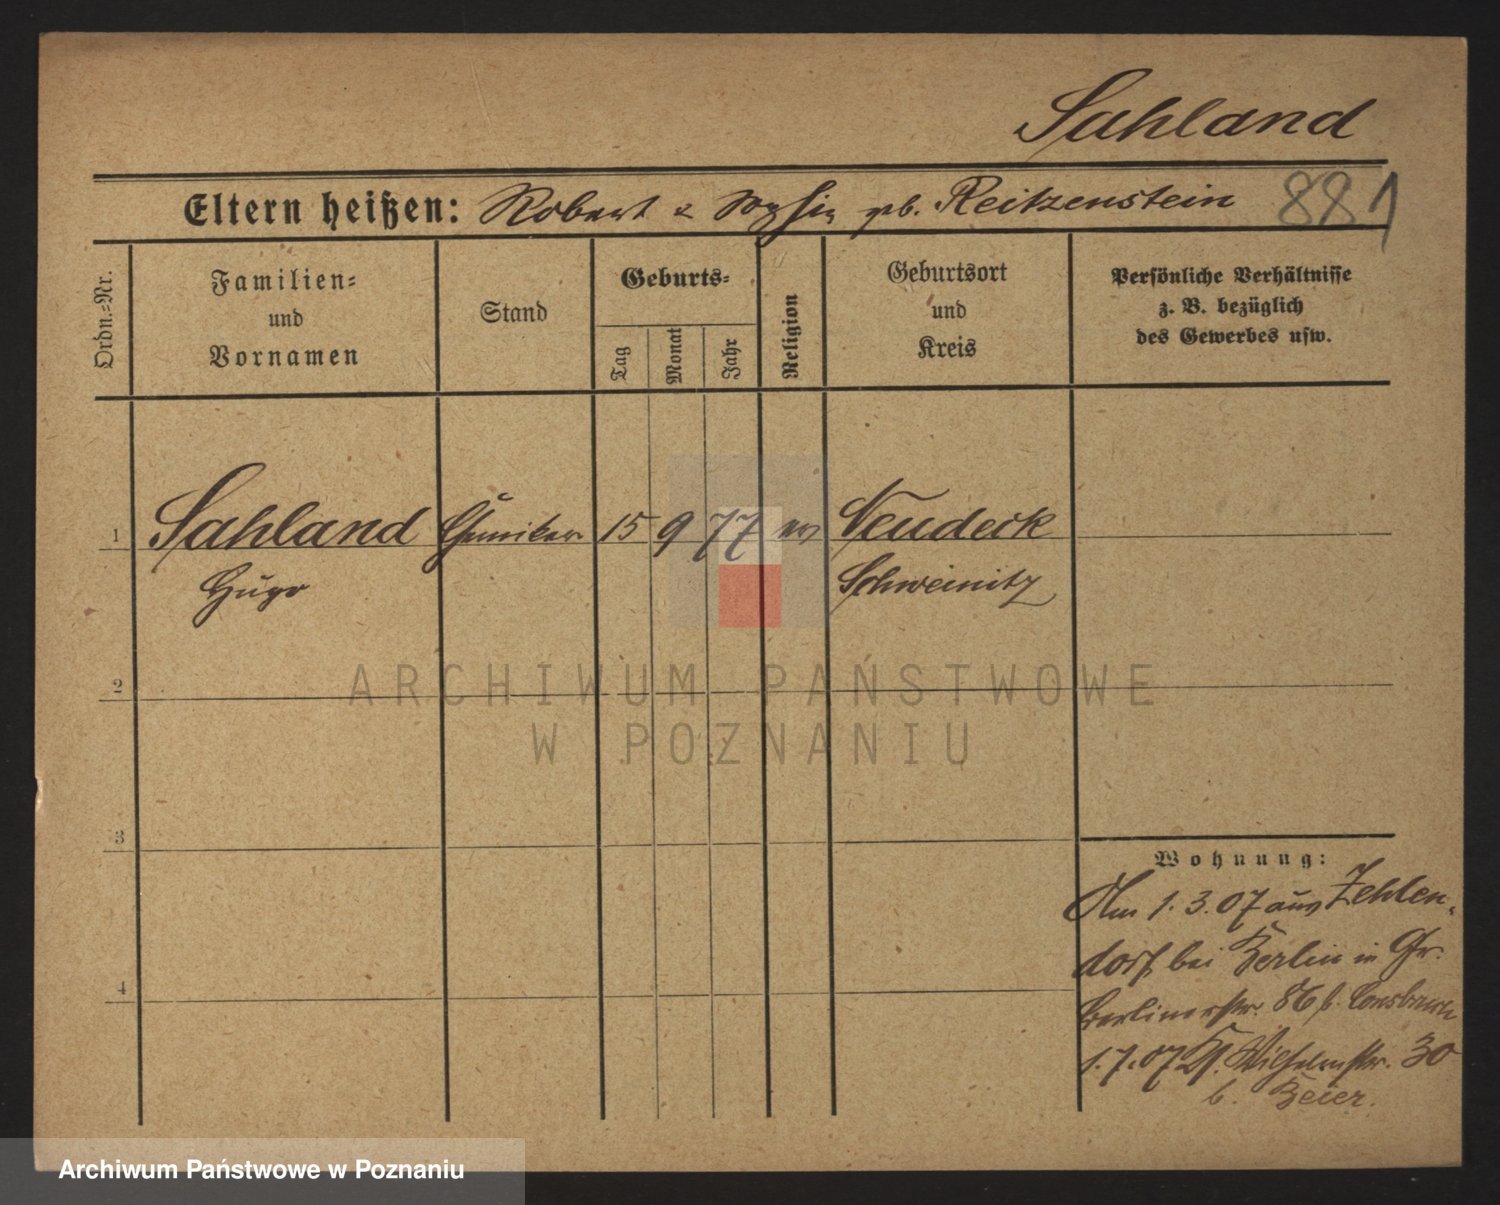 Sahland
Eltern heißen: Robert & Sophie geb. Reitzenstein 881
Ordn.=Nr.
Familien=
und
Vornamen
Stand
Geburts=
Tag
Monat
Jahr
Religion
Geburtsort
und
Kreis
Persönliche Verhältnisse
z. B. bezüglich
des Gewerbes usw.
1 Sahland Chemiker 15 9 77 ev Neudeck
Hugo Schweinitz
2
ARCHIWUM PAŃSTWOWE
W POZNANIU
3
Wohnung:
Am 1.3.07 aus Zehlen-
dorf bei Berlin in Gr.
4
Berlinerstr. 86 b.
1.7.07 Wilhelmstr. 30
b. Beier.
Archiwum Państwowe w Poznaniu